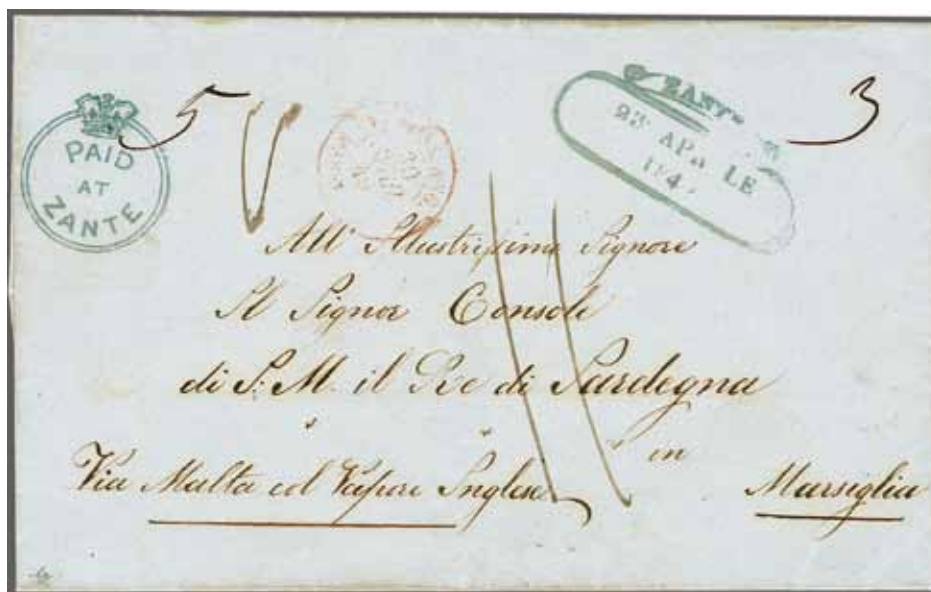 5
3
PAID
AT
ZANTE
ZANTE
23 APRILE
184
All' Illustrissimo Signore
Il Signor Console
di S: M. il Re di Sardegna
in
Via Malta col Vapore Inglese
Marsiglia